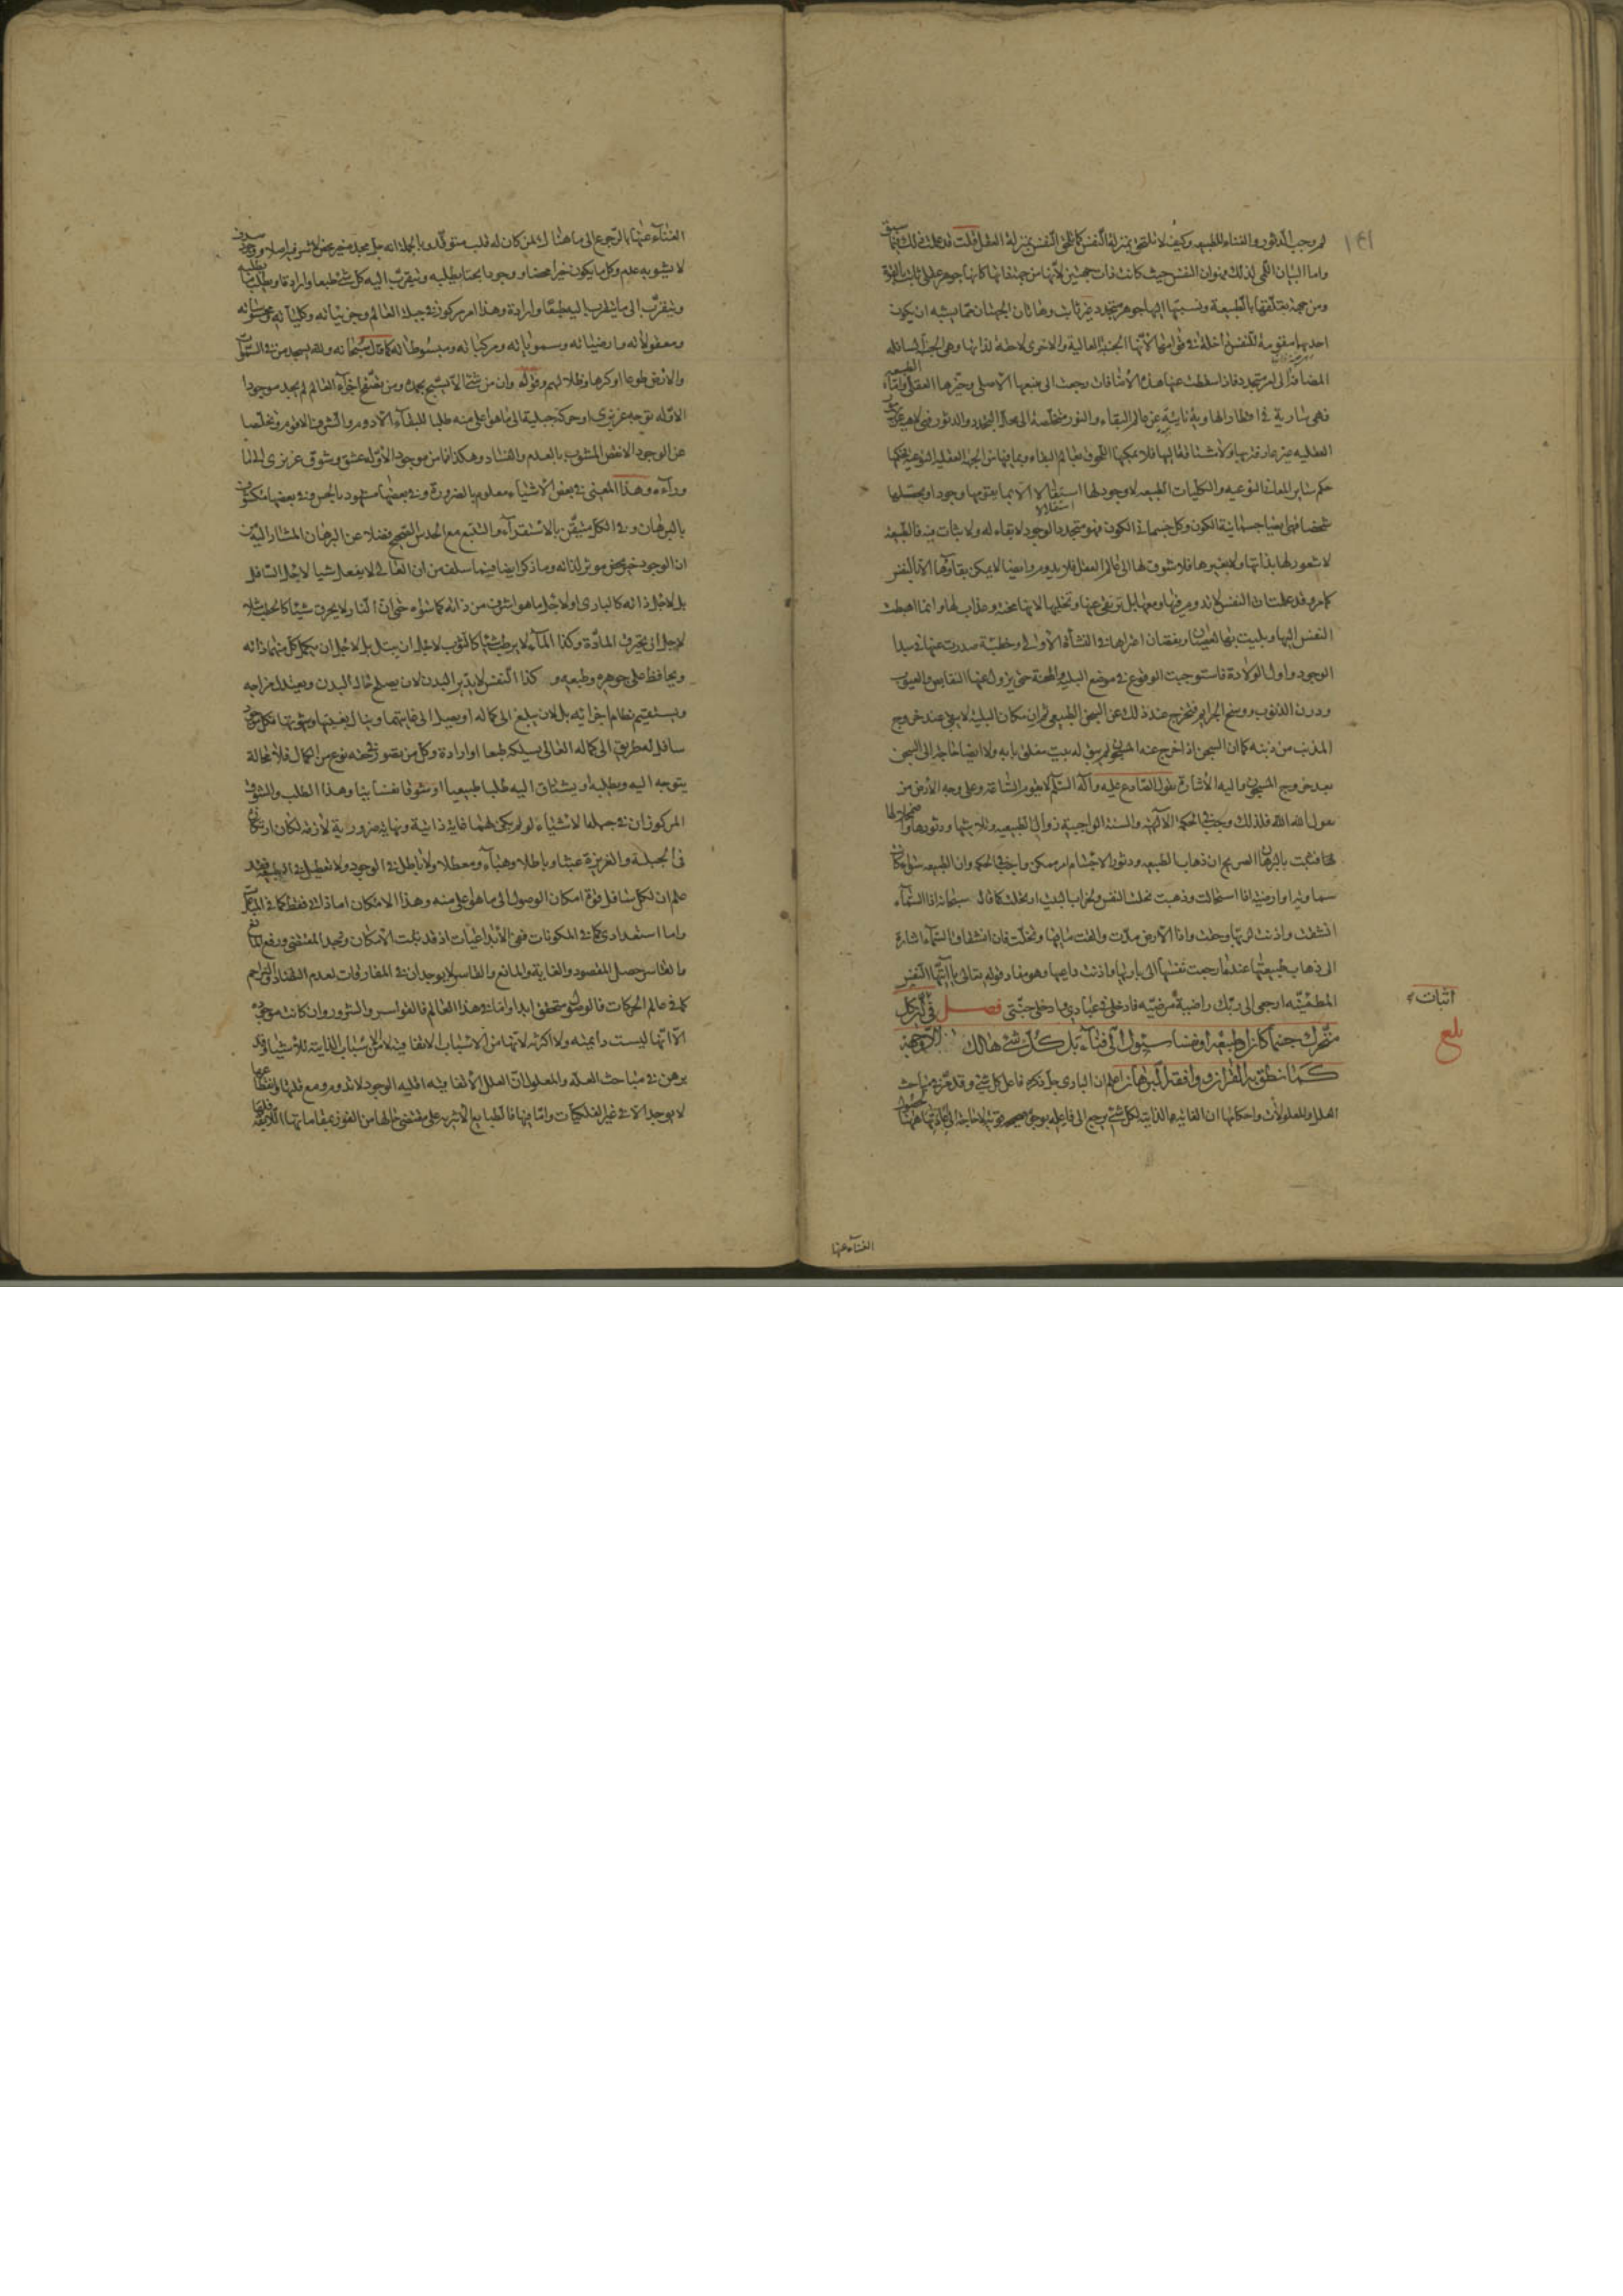 لم وجب الدثور والفناء للطبيعه وكيف لا تلتقى بمنزلة النفس كما تلتقى النفس بمنزلة العقل قلت قد علمت ذلك فيما سبق
واما البيان اللمى لذلك فهو ان النفس حيث كانت ذات جهتين لانها من جهة ذاتها كانها جوهر عقلى ثابت بالقوة
ومن جهة تعلقها بالطبيعة ونسبتها اليها جوهر متجدد غير ثابت وهاتان الجهتان مما يشبه ان يكون
احديهما مقومة للنفس داخلة فى قوامها لانها الجنبة العالية والاخرى لاحقة لذاتها وهى الجنبة السافله
المضافة الى امر متجدد فاذا سقطت عنها هذه الاضافات رجعت الى منبعها الاصلى وحيزها العقلى واما الطبيعه
فهى سارية فى اقطارها وبة نائية عن عالم البقاء والنور متخلصة الى محال التجدد والدثور فهى
العقليه غير عارفة بها ولا مشتاقة اليها فلا يمكنها اللحوق بعالم البقاء وبما فيها من الجهة العقليه النوعيه حكمها
حكم سائر المعانى النوعيه والكليات الطبيعه لا وجود لها استقلالا الا بما يتقومها وجودا ويحصلها
شخصا فهى بعينها جسمانية الكون وكل جسمانى الكون فهو متجدد الوجود لا بقاء له ولا ثبات فيه فالطبيعه
لا شعور لها بذاتها ولا بغيرها فلا شوق لها الى عالم العقل فلا يدوم وايضا لا يمكن بقاؤها الا بالنفس
كما مر وقد علمت ان النفس لا تدوم فيها ومعها بل ترتقى عنها وتخليها لانها محنة وعذاب لها وانما اهبطت
النفس اليها وبليت بها لعصيان ونقصان اعتراها فى النشأة الاولى وخطيئة صدرت عنها فى مبدا
الوجود واول الولادة فاستوجبت الوقوع فى موضع البلية والمحنة حتى يزول عنها النقايص والعيوب
ودرن الذنوب ووسخ الجرايم فتخرج عند ذلك عن السجن الطبيعى ثم ان مكان البلية لا يبقى عند خروج
المذنب من ذنبه كما ان السجن اذا خرج عنه المسجون لم يبق له بيت مغلق بابه ولا ايضا حاجة الى السجن
بعد خروج المسجون واليه الاشارة بقول الصادع عليه وآله السلم لا يقوم الساعة وعلى وجه الارض من
يقول الله الله فلذلك وجب فى الحكمة الالهية والسنة الواجبية زوال الطبيعيه وتلاشيها ودثورها واضمحلالها
فاذا ثبت بالبرهان الصريح ان ذهاب الطبيعه ودثور الاجسام امر ممكن واجب فى الحكمه وان الطبيعه سواء كانت
سماوية او ارضية اذا استحالت وذهبت تخلت النفس وخراب البيت ارتحلت كما قال سبحانه اذا السماء
انشقت واذنت لربها وحقت واذا الارض مدت والقت ما فيها وتخلت فان انشقاق السماء اشارة
الى ذهاب طبيعتها عندما رجعت نفسها الى باريها واذنت داعيها وهو مفاد قوله تعالى يا ايتها النفس
المطمئنه ارجعى الى ربك راضية مرضيه فادخلى فى عبادى وادخلى جنتى فصل فى ان كل
متحرك جسما كان او طبيعة او نفسا سيئول الى فناء بل كل شئ هالك الا وجهه
كما نطق به القران ووافقه البرهان اعلم ان البارى جل ذكره فاعل كل شئ وقد تقرر فى مباحث
العلل والمعلولات واحكامها ان الغاية الذاتيه لكل شئ يرجع الى فاعله بوجه صحيح
اثبات
بلغ
الفناء عنها
الفناء عنها بالرجوع الى ما هنالك لمن كان له قلب متوقد وبالجملة انه جل مجده خير محض لا شر فيه اصلا ووجود صرف
لا يشوبه عدم وكل ما يكون خيرا محضا ووجودا بحتا يطلبه ويتقرب اليه كل شئ طبعا وارادة ويطلب
ويتقرب الى ما يتقرب اليه طبعا وارادة وهذا امر مركوز فى جبلة العالم وجزئياته وكلياته محسوساته
ومعقولاته وارضياته وسموياته ومركباته ومبسوطاته كما قال سبحانه ولله يسجد من فى السموات
والارض طوعا او كرها وظلالهم وقوله وان من شئ الا يسبح بحمده ومن تصفح اجزاء العالم لم يجد موجودا
الا وله توجه غريزى او حركة جبلية الى ما هو اعلى منه طلبا للبقاء الادوم والشرف الاقوم وتخلصا
عن الوجود الانقص المشوب بالعدم والفساد وهكذا ما من موجود الا وله عشق وشوق غريزى الى ما
وراءه وهذا المعنى فى بعض الاشياء معلوم بالضرورة وفى بعضها مشهود بالحس وفى بعضها مكشوف
بالبرهان وفى الكل متيقن بالاستقراء والتتبع مع الحدس الصحيح فضلا عن البرهان المشار اليه من
ان الوجود خير محض موثر لذاته وما ذكر ايضا فيما سلف من ان العالى لا يفعل شيا لاجل السافل
بل لاجل ذاته كالبارى او لاجل ما هو اشرف من ذاته كما سواه حتى ان النار لا يحرق شيئا كالحطب مثلا
لاجل ان يحترق المادة وكذا الماء لا يرطب شيئا كالثوب لاجل ان يبتل بل لاجل ان يكمل كل منهما ذاته
ويحافظ على جوهره وطبعه وكذا النفس لا يدبر البدن لان يصلح حال البدن ويعتدل مزاجه
ويستقيم نظام اجزائه بل لان يبلغ الى كماله او يصل الى غايتها وينال بغيتها وشوقها فكل موجود
سافل له طريق الى كماله العالى يسلكه طبعا او ارادة وكل من يتصور فى حقه نوع من الكمال فلا محالة
يتوجه اليه ويطلبه او يشتاق اليه طلبا طبيعيا او شوقا نفسانيا وهذا الطلب والشوق
المركوزان فى جبلة الاشياء لو لم يكن لهما غاية ذاتية ونهاية ضرورية لازمة لكان ارتكازه
فى الجبلة والغريزة عبثا وباطلا وهباء ومعطلا ولا باطل فى الوجود ولا تعطيل فى الطبيعه فقد
علم ان لكل سافل قوة امكان الوصول الى ما هو اعلى منه وهذا الامكان اما ذاتى فقط كما فى المبدعات
واما استعدادى كما فى المكونات ففى الابداعيات اذ قد ثبت الامكان وتجدد المقتضى ورفع المانع
والقاسر حصل المقصود والغاية والمانع والقاسر لا يوجدان فى المفارقات لعدم التضاد والتزاحم
كما فى عالم الحركات فالوصول متحقق ابدا واما فى هذا العالم فالقواسر والشرور وان كانت موجودة
الا انها ليست دايمية ولا اكثرية لانها من الاسباب الاتفاقية لا من الاسباب الذاتية للاشياء وقد
برهن فى مباحث العلة والمعلول ان العلل الاتفاقيه اقلية الوجود لا تدوم ومع قلتها وانقطاعها
لا يوجد الا فى غير الفلكيات واما فيها فالطبايع الاثيريه على مقتضى حالها من الفوز بمقاماتها اللايقه